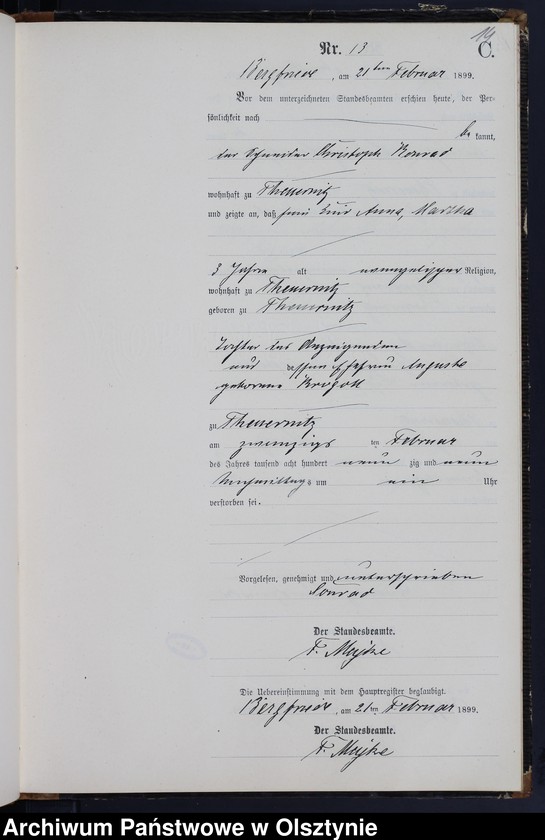 14
C.
Nr. 13
Bergfriede, am 21ten Februar 1899.
Vor dem unterzeichneten Standesbeamten erschien heute, der Per-
sönlichkeit nach
be kannt,
der Schneider Christoph Konrad
wohnhaft zu Theuernitz
und zeigte an, daß sein Kind Anna, Martha
3 Jahre alt evangelischer Religion,
wohnhaft zu Theuernitz
geboren zu Theuernitz
Tochter des Anzeigenden
und dessen Ehefrau Auguste
geborene
zu Theuernitz
am zwanzigs ten Februar
des Jahres tausend acht hundert neun zig und neun
Nachmittags um ein Uhr
verstorben sei.
Vorgelesen, genehmigt und unterschrieben
Konrad
Der Standesbeamte.
F.
Die Uebereinstimmung mit dem Hauptregister beglaubigt.
Bergfriede, am 21ten Februar 1899.
Der Standesbeamte.
F.
Archiwum Państwowe w Olsztynie